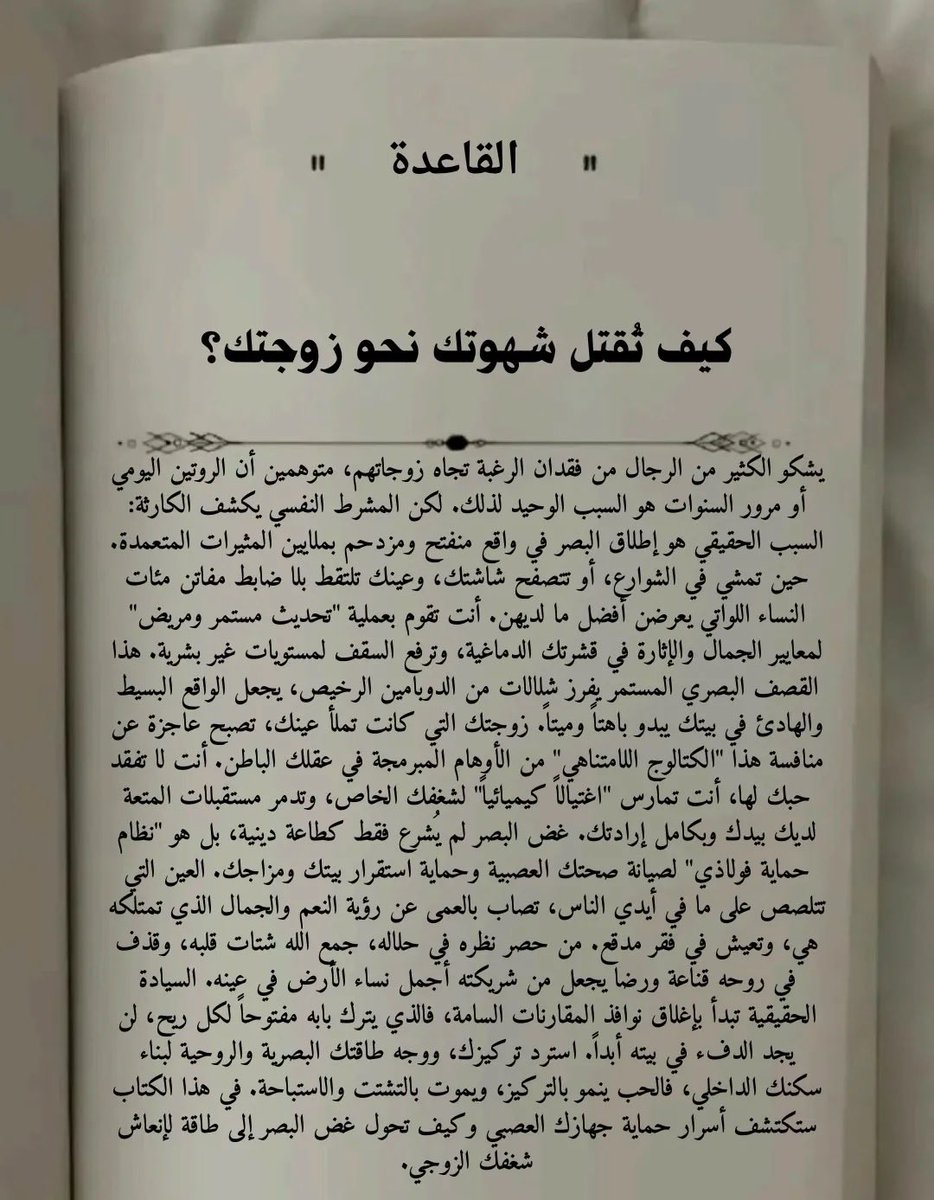 " القاعدة "
كيف تُقتل شهوتك نحو زوجتك؟
يشكو الكثير من الرجال من فقدان الرغبة تجاه زوجاتهم، متوهمين أن الروتين اليومي
أو مرور السنوات هو السبب الوحيد لذلك. لكن المشرط النفسي يكشف الكارثة:
السبب الحقيقي هو إطلاق البصر في واقع منفتح ومزدحم بملايين المثيرات المتعمدة.
حين تمشي في الشوارع، أو تتصفح شاشتك، وعينك تلتقط بلا ضابط مفاتن مئات
النساء اللواتي يعرضن أفضل ما لديهن. أنت تقوم بعملية "تحديث مستمر ومريض"
لمعايير الجمال والإثارة في قشرتك الدماغية، وترفع السقف لمستويات غير بشرية. هذا
القصف البصري المستمر يفرز شلالات من الدوبامين الرخيص، يجعل الواقع البسيط
والهادئ في بيتك يبدو باهتاً وميتاً. زوجتك التي كانت تملأ عينك، تصبح عاجزة عن
منافسة هذا "الكتالوج اللامتناهي" من الأوهام المبرمجة في عقلك الباطن. أنت لا تفقد
حبك لها، أنت تمارس "اغتيالاً كيميائياً" لشغفك الخاص، وتدمر مستقبلات المتعة
لديك بيدك وبكامل إرادتك. غض البصر لم يُشرع فقط كطاعة دينية، بل هو "نظام
حماية فولاذي" لصيانة صحتك العصبية وحماية استقرار بيتك ومزاجك. العين التي
تتلصص على ما في أيدي الناس، تصاب بالعمى عن رؤية النعم والجمال الذي تمتلكه
هي، وتعيش في فقر مدقع. من حصر نظره في حلاله، جمع الله شتات قلبه، وقذف
في روحه قناعة ورضا يجعل من شريكته أجمل نساء الأرض في عينه. السيادة
الحقيقية تبدأ بإغلاق نوافذ المقارنات السامة، فالذي يترك بابه مفتوحاً لكل ريح، لن
يجد الدفء في بيته أبداً. استرد تركيزك، ووجه طاقتك البصرية والروحية لبناء
سكنك الداخلي، فالحب ينمو بالتركيز، ويموت بالتشتت والاستباحة. في هذا الكتاب
ستكتشف أسرار حماية جهازك العصبي وكيف تحول غض البصر إلى طاقة لإنعاش
شغفك الزوجي.